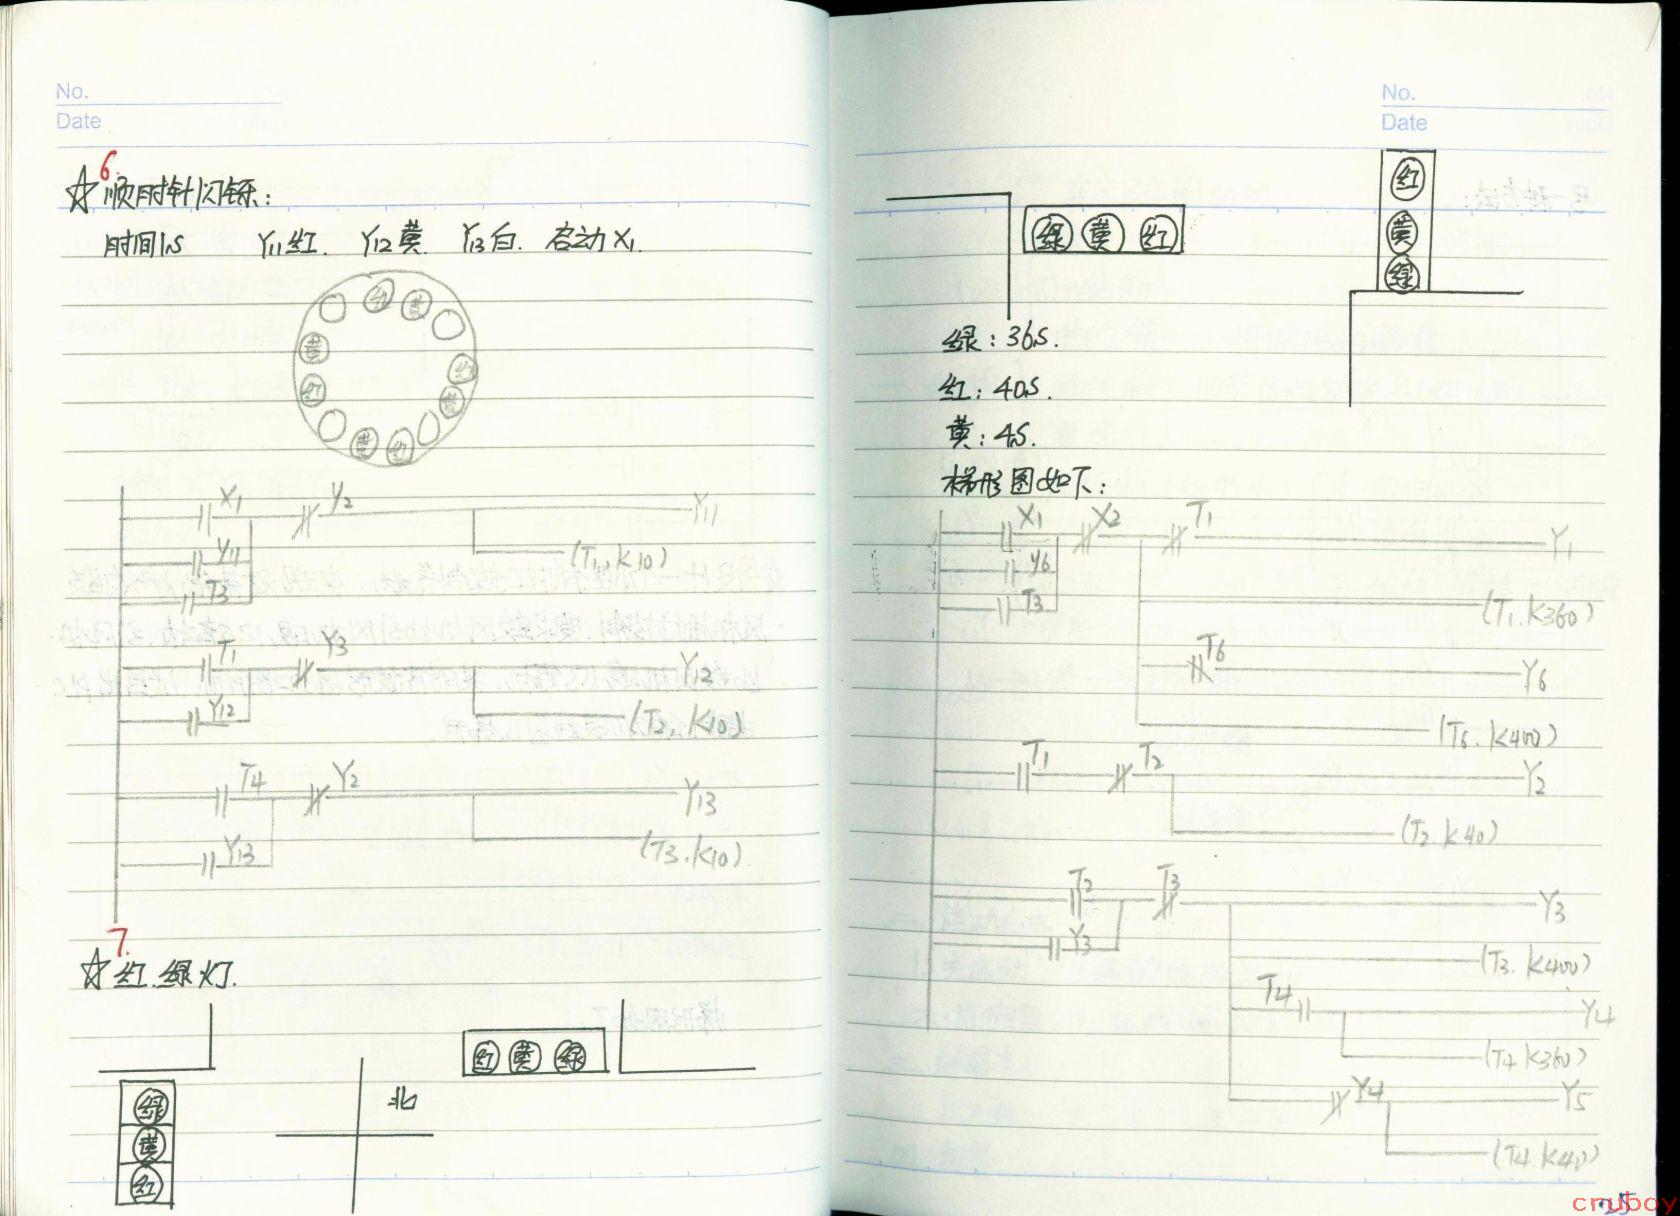 No.
Date
6.
☆ 顺时针闪铄:
时间1s Y11红. Y12黄. Y13白. 启动X1.
红 黄
黄 红
红 黄
黄 红
X1 Y2 Y11
Y11 (T1, K10)
T3
T1 Y3 Y12
Y12 (T2, K10)
T4 Y2 Y13
Y13 (T3. K10)
7.
☆ 红.绿灯.
红 黄 绿
绿
黄
红
北
No.
Date
绿 黄 红
红
黄
绿
绿: 36s.
红: 40s.
黄: 4s.
梯形图如下:
X1 X2 T1 Y1
Y6
T3 (T1. K360)
T6 Y6
(T6. K400)
T1 T2 Y2
(T2. K40)
T2 T3 Y3
Y3 (T3. K400)
T4 Y4
(T4 K360)
Y4 Y5
(T4. K40)
25
cruboy